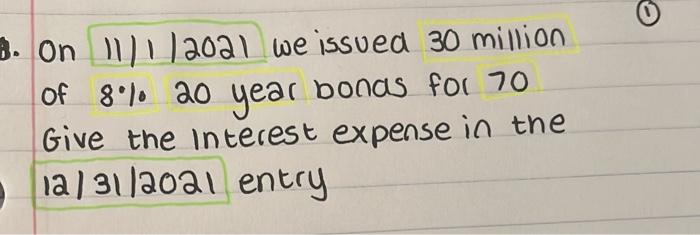 ①
8. On 11/1/2021 we issued 30 million
of 8% 20 year bonds for 70
Give the Interest expense in the
12/31/2021 entry